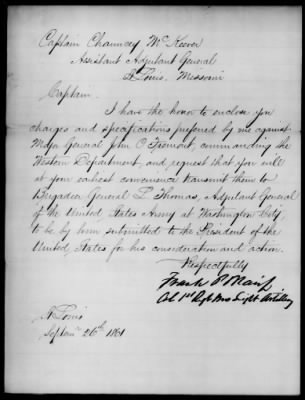 Captain Chauncey McKeever
Assistant Adjutant General
St Louis, Missouri
Captain.
I have the honor to enclose you
charges and specifications preferred by me against
Major General John C Fremont, commanding the
Western Department, and request that you will
at your earliest convenience transmit them to
Brigadier General L. Thomas, Adjutant General
of the United States Army at Washington City,
to be by him submitted to the President of the
United States for his consideration and action.
Respectfully
Frank P Blair Jr
Col 1st Regt Mo Light Artillery
St Louis
Septemr 26th 1861